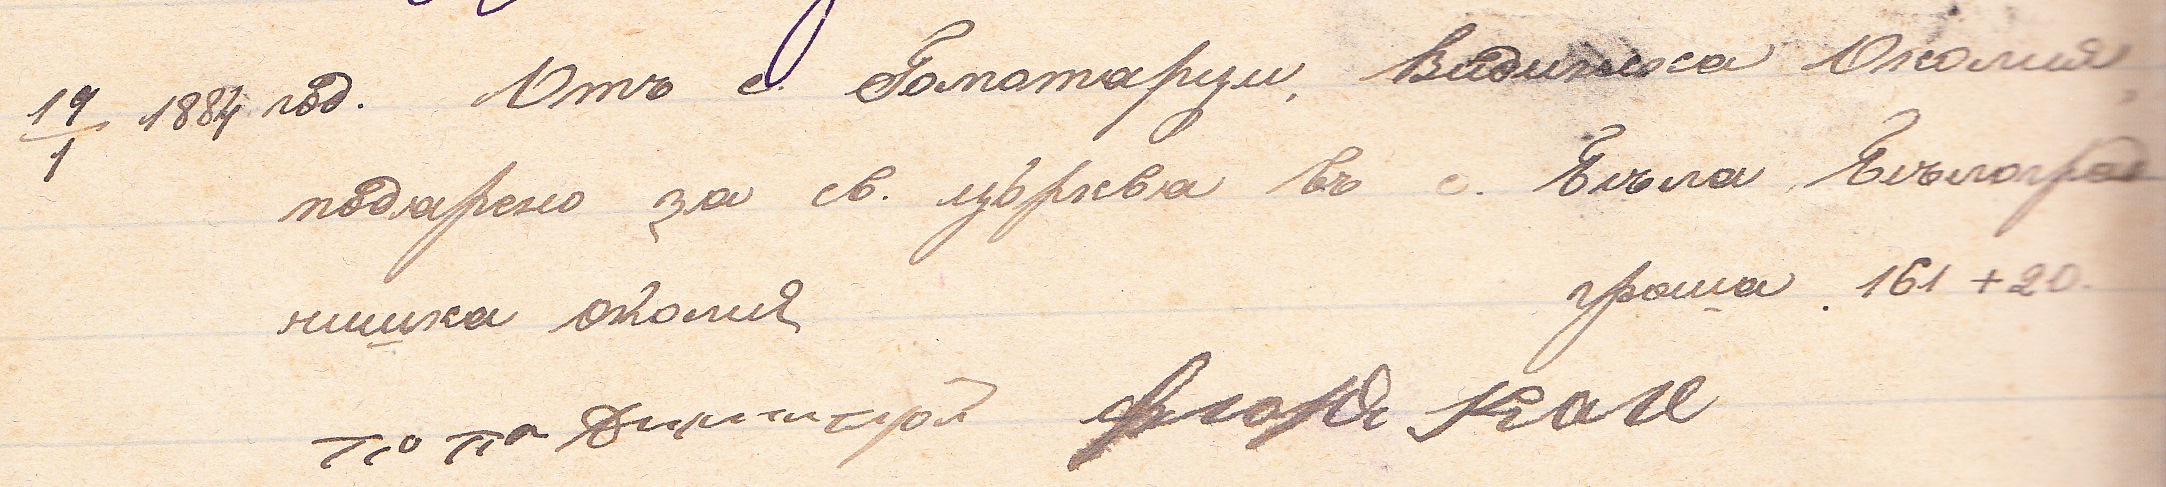 19/1 1884 год. Отъ с. Гомотарци, Видинска Околия,
подарено за св. църква въ с. Бѣла, Бѣлоград
чишка околия гроша. 161 + 20.
попа Димитрой